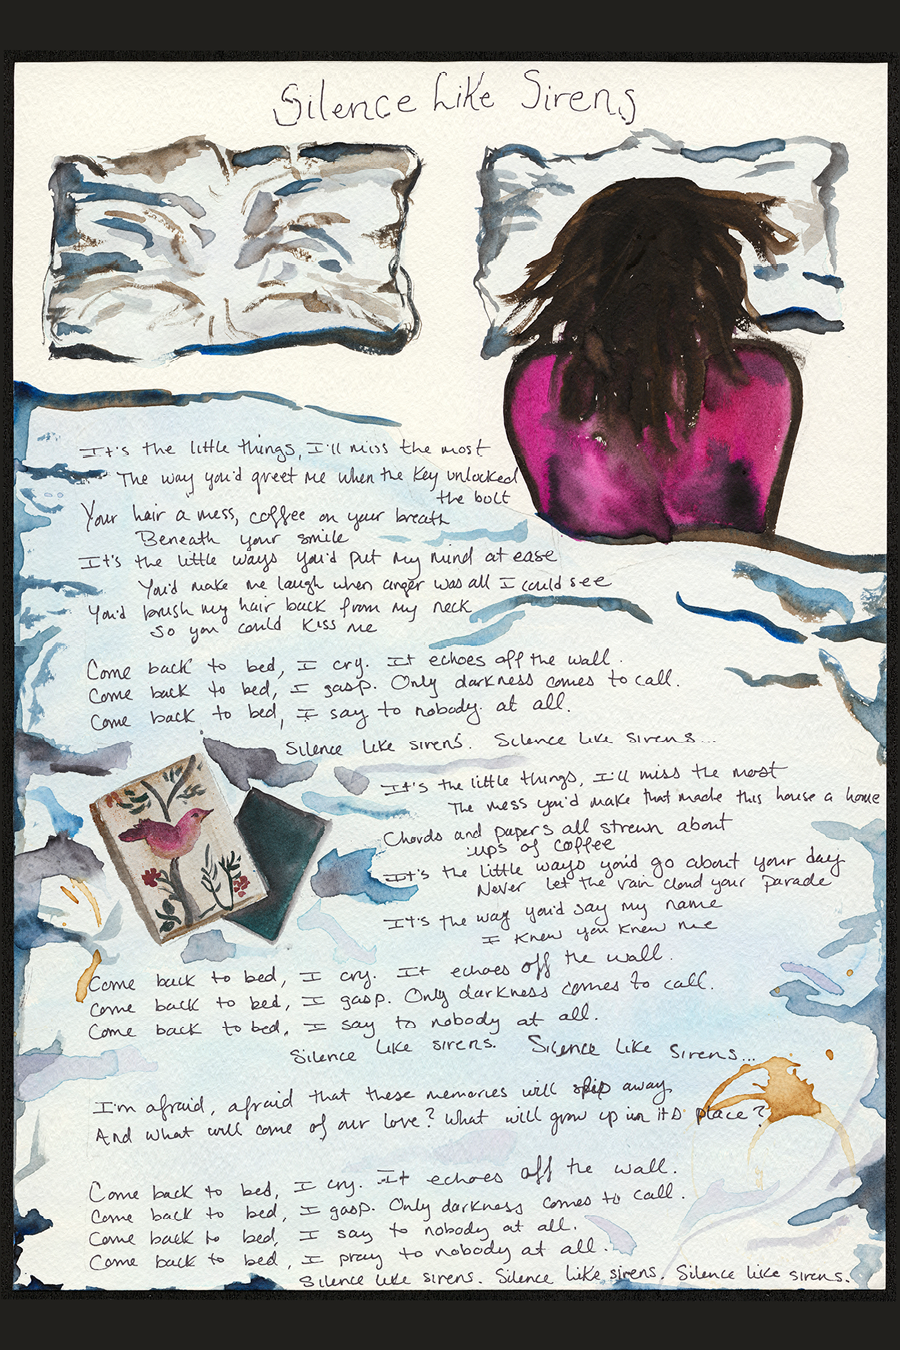 Silence Like Sirens
It's the little things, I'll miss the most
The way you'd greet me when the key unlocked
the bolt
Your hair a mess, coffee on your breath
Beneath your smile
It's the little ways you'd put my mind at ease
You'd make me laugh when anger was all I could see
You'd brush my hair back from my neck
So you could kiss me
Come back to bed, I cry. It echoes off the wall.
Come back to bed, I gasp. Only darkness comes to call.
Come back to bed, I say to nobody at all.
Silence like sirens. Silence like sirens...
It's the little things, I'll miss the most
The mess you'd make that made this house a home
Chords and papers all strewn about
ups of coffee
It's the little ways you'd go about your day
Never let the rain cloud your parade
It's the way you'd say my name
I knew you knew me
Come back to bed, I cry. It echoes off the wall.
Come back to bed, I gasp. Only darkness comes to call.
Come back to bed, I say to nobody at all.
Silence like sirens. Silence like sirens...
I'm afraid, afraid that these memories will slip away
And what will come of our love? What will grow up in its place?
Come back to bed, I cry. It echoes off the wall.
Come back to bed, I gasp. Only darkness comes to call.
Come back to bed, I say to nobody at all.
Come back to bed, I pray to nobody at all.
Silence like sirens. Silence like sirens. Silence like sirens.